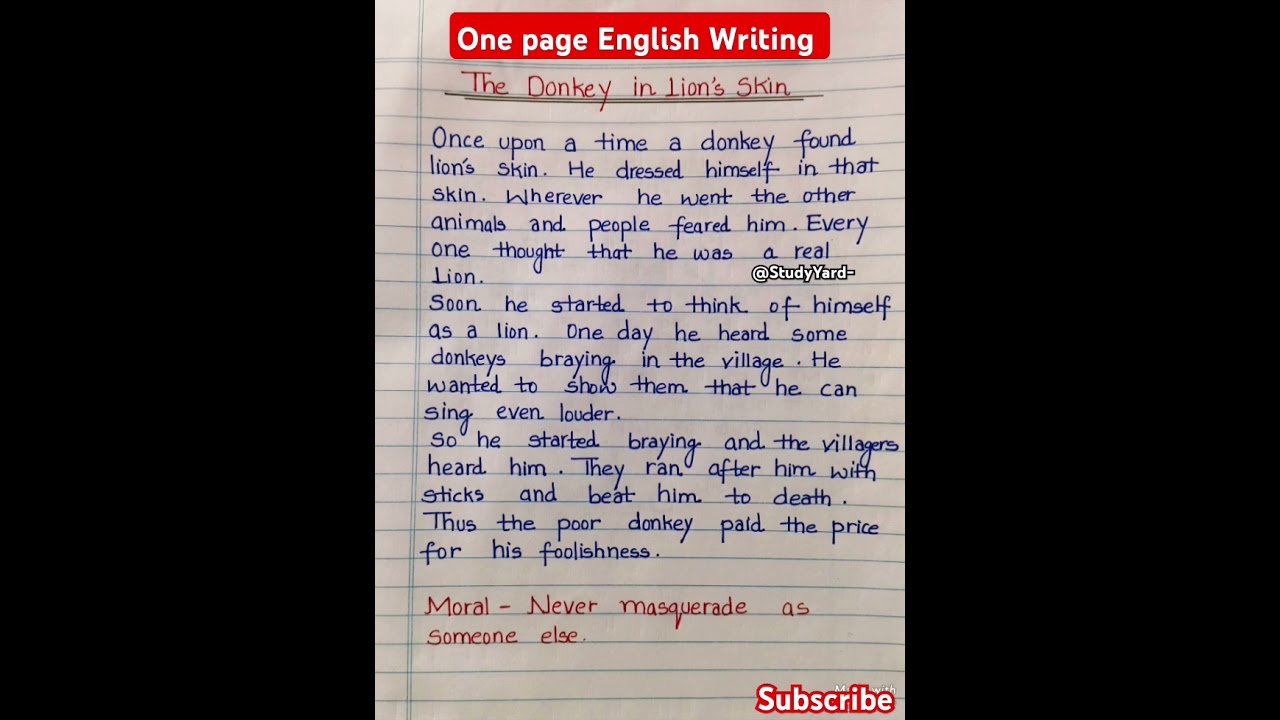 One page English Writing
The Donkey in Lion's Skin
Once upon a time a donkey found
lion's skin. He dressed himself in that
skin. Wherever he went the other
animals and people feared him. Every
one thought that he was a real
Lion.
@StudyYard-
Soon he started to think of himself
as a lion. One day he heard some
donkeys braying in the village. He
wanted to show them that he can
sing even louder.
So he started braying and the villagers
heard him. They ran after him with
sticks and beat him to death.
Thus the poor donkey paid the price
for his foolishness.
Moral - Never masquerade as
someone else.
Subscribe